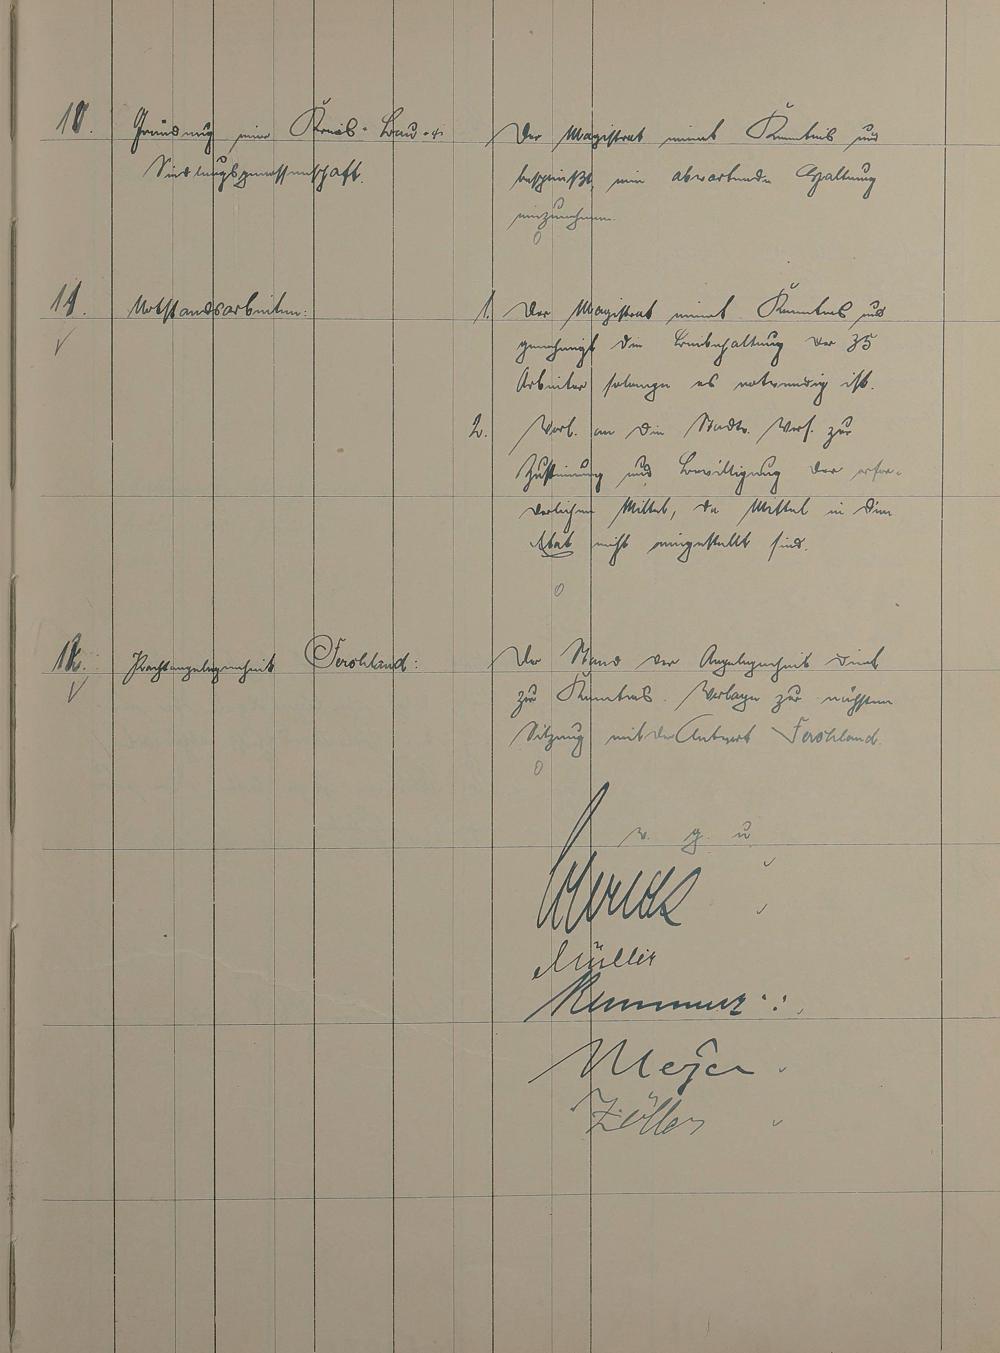 10. Gründung einer Kreis- Bau- u.
Siedlungsgenossenschaft.
Der Magistrat nimmt Kenntnis und
beschließt, eine abwartende Haltung
einzunehmen.
11. Notstandsarbeiten:
1. Der Magistrat nimmt Kenntnis und
genehmigt die Beibehaltung der 35
Arbeiter solange es notwendig ist.
2. Vorl. an die Stadtv. Vers. zur
Zustimmung und Bewilligung der erfor-
derlichen Mittel, da Mittel in den
Etat nicht eingestellt sind.
12. Pachtangelegenheit Ferohland:
Der Stand der Angelegenheit dient
zur Kenntnis. Vorlage zur nächsten
Sitzung mit der Antwort Ferohland.
v. g. u.
Müller
Meyer
Zöller